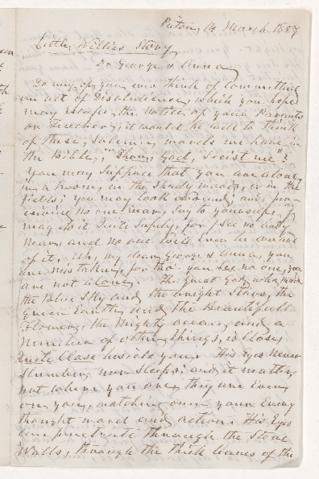 14 March 1857
Little Willies Story
To George & Anna
Do any of you ever think of committing
an act of Disobedience, which you hope
may escape the Notice of your Parents
or Teachers; it would be well to think
of these solemn words we have in
the Bible, "Thou, God, Seest me"?
You may suppose that you are alone,
in a room, in the Shady woods, or in the
fields; You may look around, and per-
ceiving no one near, Say to yourself, I
may do it quite Safely, for I see no body
near, and no one will ever be
of it. Oh, my dear George & Anna, you
are mistaken, for tho' you see no one, you
are not alone. The Great God, who made
the Blue Sky and the bright Stars, the
Green Earth, and The Beautifull
Flowers, the Mighty ocean, and a
number of other things, is close,
quite Close beside you. His Eyes Never
Slumber nor Sleeps, and it matters
not where you are, they are Ever
on you, watching over your Every
thought word and action. His Eyes
can penetrate through the Stone
Walls, through the thick leaves of the